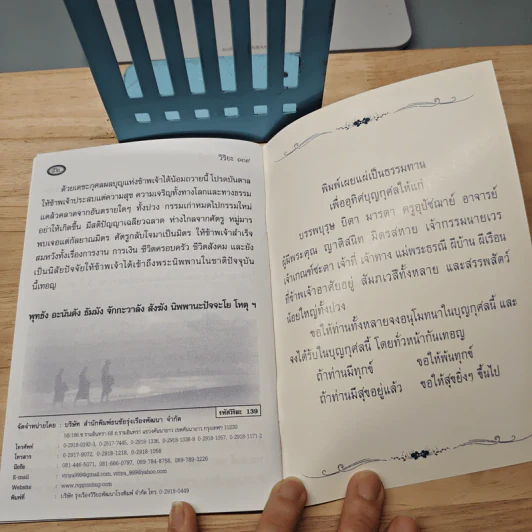 วิริยะ ๑๓๙
ด้วยเดชะกุศลผลบุญแห่งข้าพเจ้าได้น้อมถวายนี้ โปรดบันดาล
ให้ข้าพเจ้าประสบแต่ความสุข ความเจริญทั้งทางโลกและทางธรรม
แคล้วคลาดจากอันตรายใดๆ ทั้งปวง กรรมเก่าหมดไปกรรมใหม่
อย่าให้เกิดขึ้น มีสติปัญญาเฉลียวฉลาด ห่างไกลจากศัตรู หมู่มาร
พบเจอแต่กัลยาณมิตร ศัตรูกลับใจมาเป็นมิตร ให้ข้าพเจ้าสำเร็จ
สมหวังทั้งเรื่องการงาน การเงิน ชีวิตครอบครัว ชีวิตสังคม และยัง
เป็นนิสัยปัจจัยให้ข้าพเจ้าได้เข้าถึงพระนิพพานในชาติปัจจุบัน
นี้เทอญ
พุทธัง อะนันตัง ธัมมัง จักกะวาลัง สังฆัง นิพพานะปัจจะโย โหตุ ฯ
รหัสวิริยะ 139
จัดจำหน่ายโดย : บริษัท สำนักพิมพ์ธนชัยรุ่งเรืองพัฒนา จำกัด
โทรศัพท์ :
โทรสาร :
มือถือ : 081-446-5371,
E-mail :
Website :
พิมพ์ที่ : บริษัท รุ่งเรืองวิริยะพัฒนาโรงพิมพ์ จำกัด โทร. 0-2918-0449
พิมพ์เผยแผ่เป็นธรรมทาน
เพื่ออุทิศบุญกุศลให้แก่
บรรพบุรุษ บิดา มารดา ครูอุปัชฌาย์ อาจารย์
ผู้มีพระคุณ ญาติสนิท มิตรสหาย เจ้ากรรมนายเวร
เจ้าเกณฑ์ชะตา เจ้าที่ เจ้าทาง แม่พระธรณี ผีบ้าน ผีเรือน
ที่ข้าพเจ้าอาศัยอยู่ สัมภเวสีทั้งหลาย และสรรพสัตว์
น้อยใหญ่ทั้งปวง
ขอให้ท่านทั้งหลายจงอนุโมทนาในบุญกุศลนี้ และ
จงได้รับในบุญกุศลนี้ โดยทั่วหน้ากันเทอญ
ถ้าท่านมีทุกข์ ขอให้พ้นทุกข์
ถ้าท่านมีสุขอยู่แล้ว ขอให้สุขยิ่งๆ ขึ้นไป